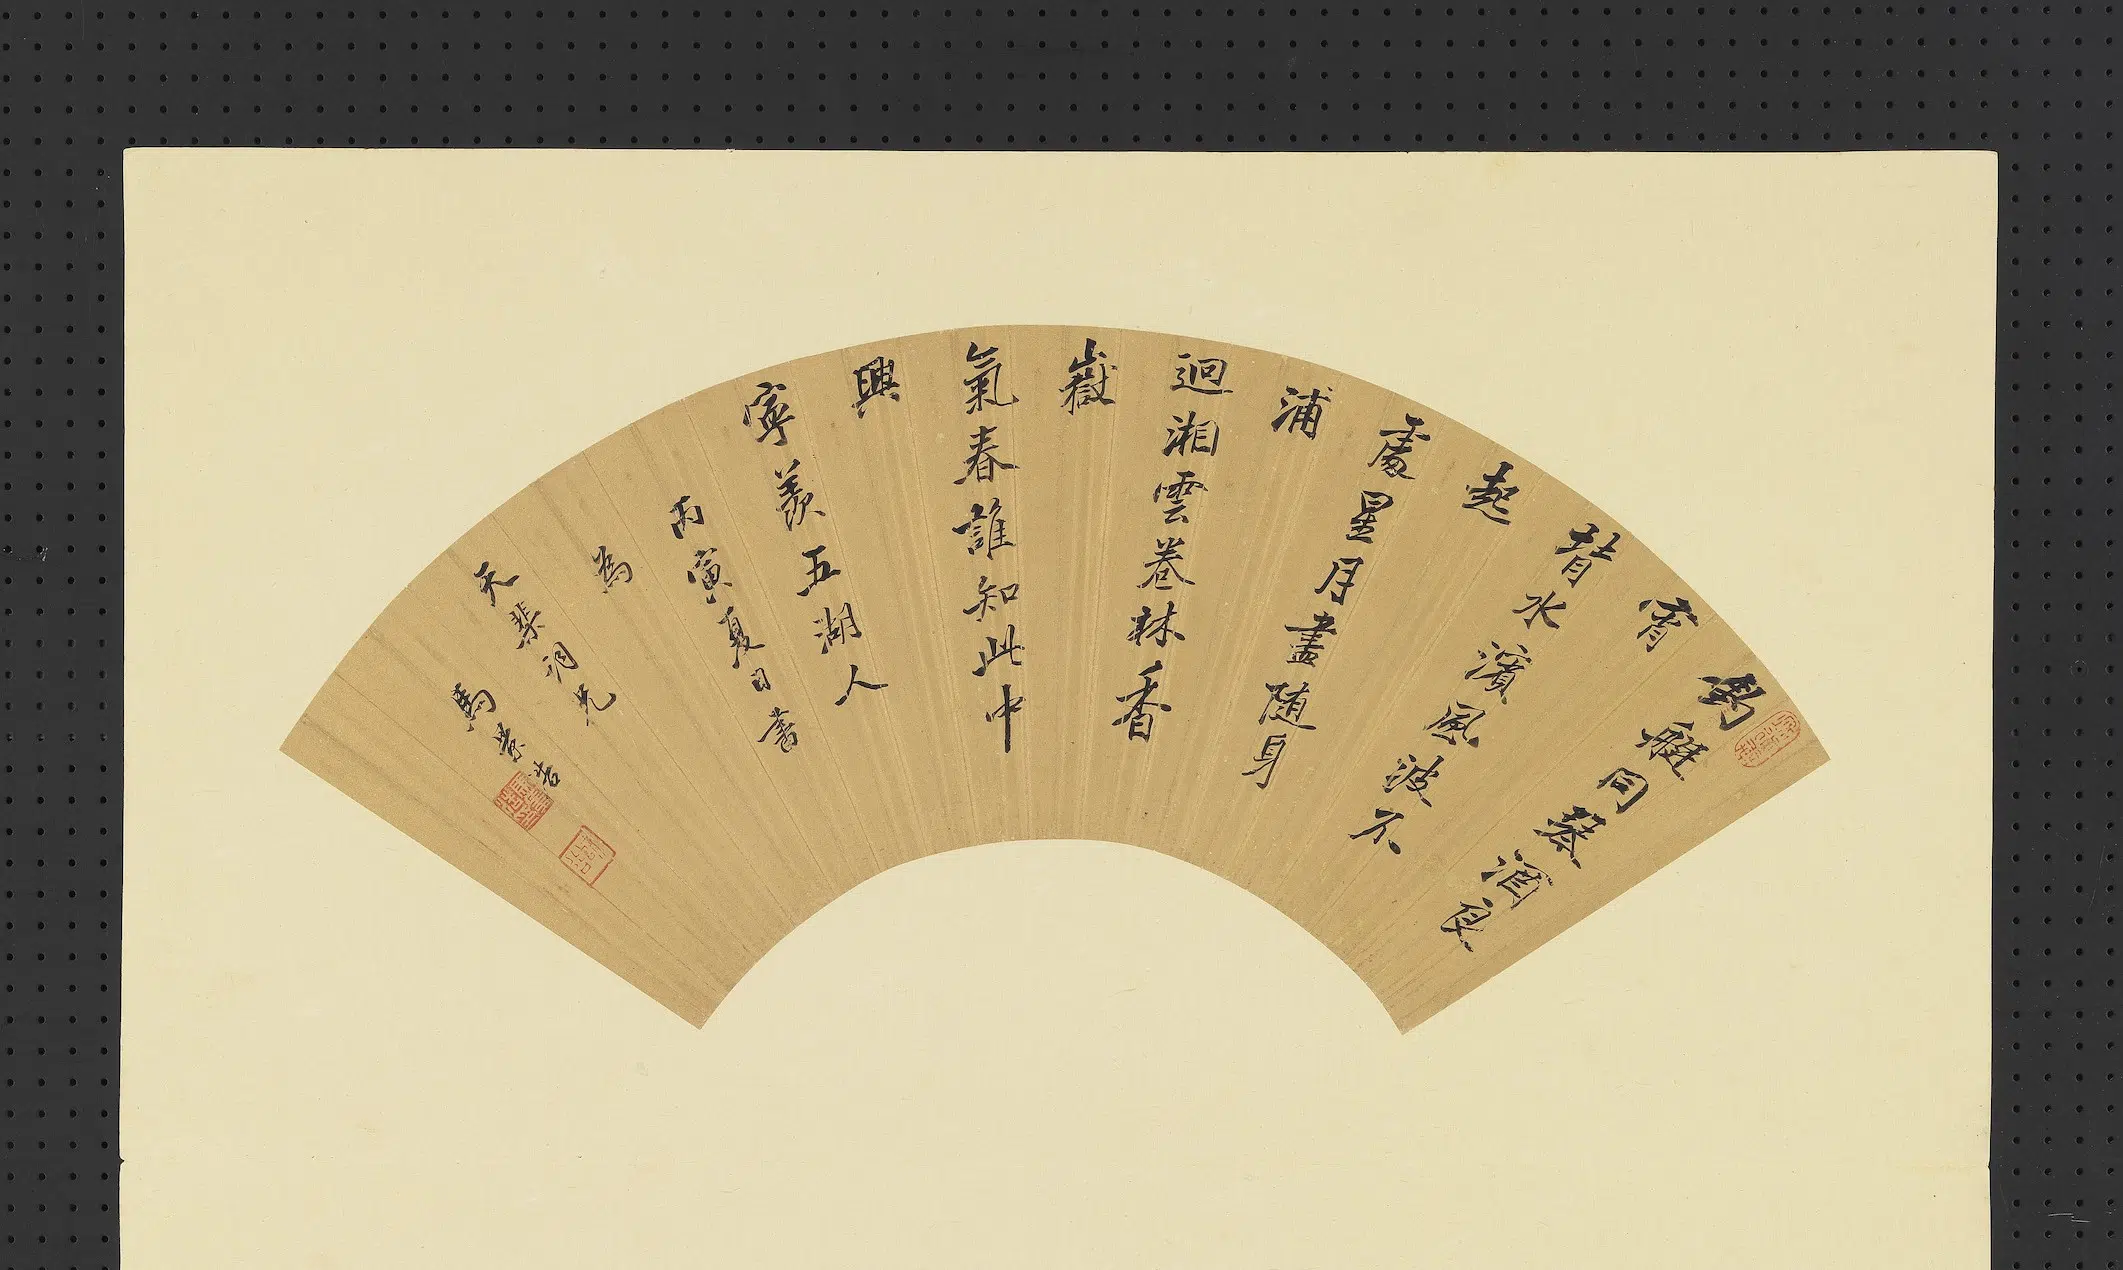 艇同琴酒良
宵
水濱風波不
起
處星月盡隨身
浦
迥湘雲卷林香
嶽
氣春誰知此中
興
寧羨五湖人
丙寅夏日書
為
天棐詞兄
馬 浩